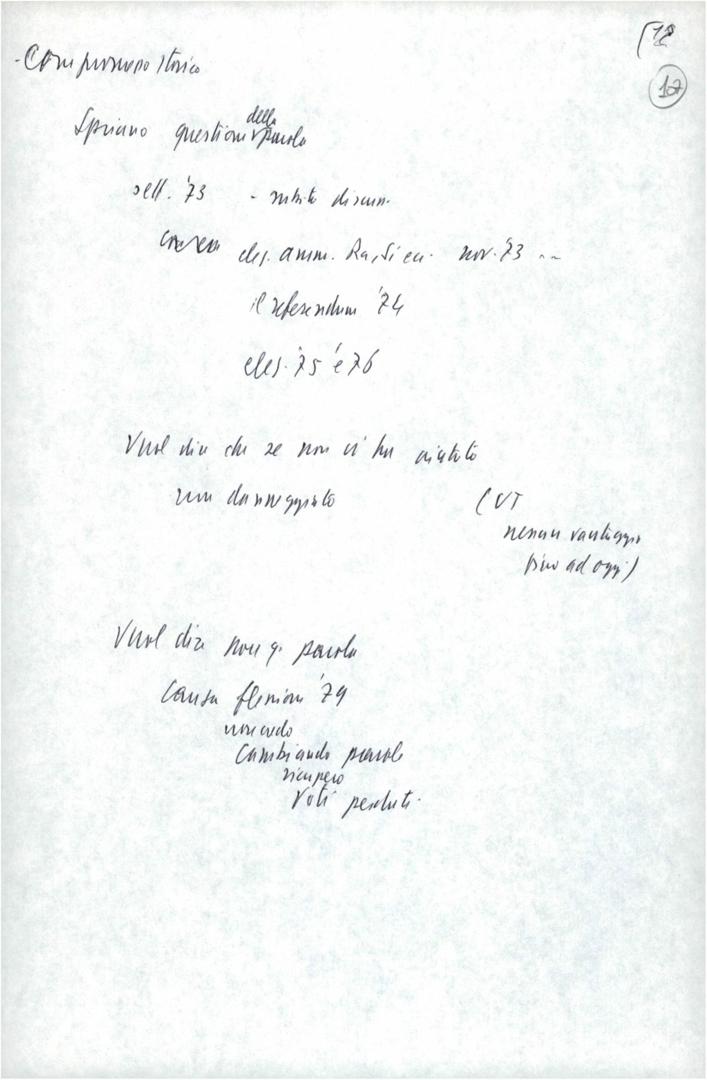 12
12
- Compromesso storico
Spriano questione della parola
sett. '73 - subito discuss.
elez. amm. nov. '73
il referendum '74
elez. '75 e '76
Vuol dire che se non ci ha aiutato
non danneggiato (VT
nessun vantaggio
sino ad oggi)
Vuol dire non q. parola
Causa flessione '79
non credo
Cambiando parola
recupero
Voti perduti.